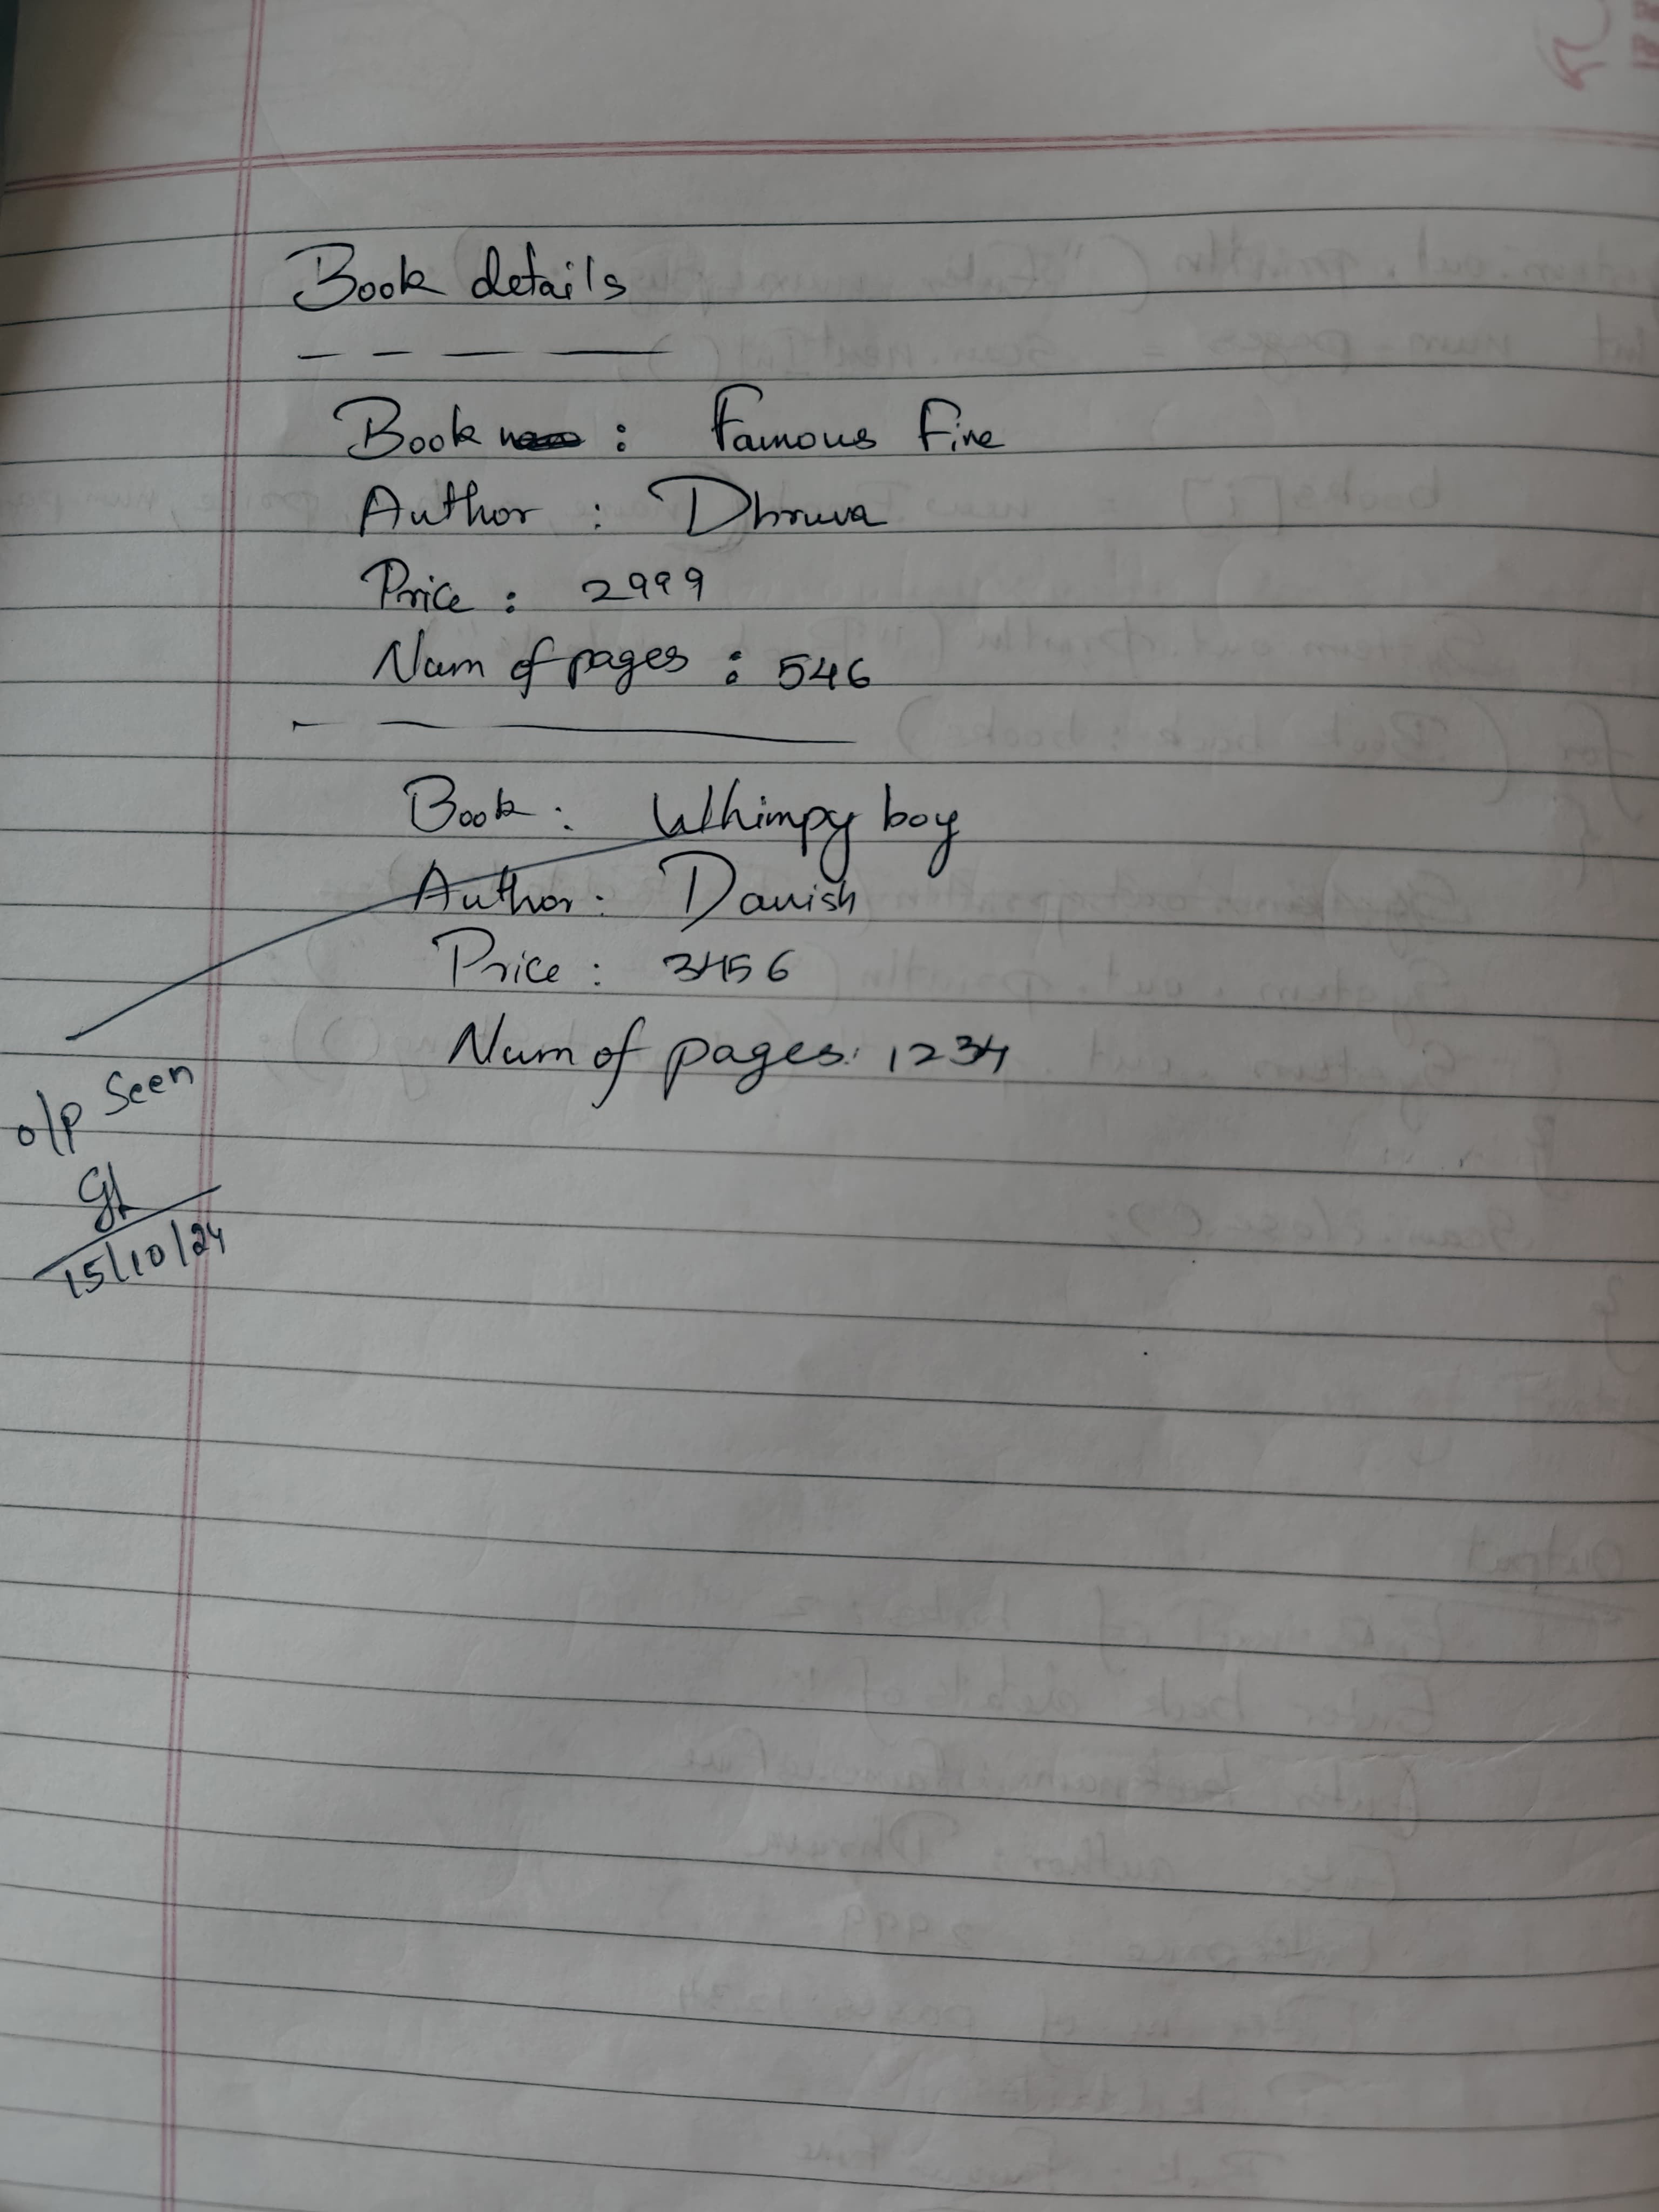 Book details
Book : Famous Five
Author : Dhruva
Price : 2999
Num of pages : 546
Book : Whimpy boy
Author : Danish
Price : 3456
Num of pages: 1234
o/p Seen
15/10/24